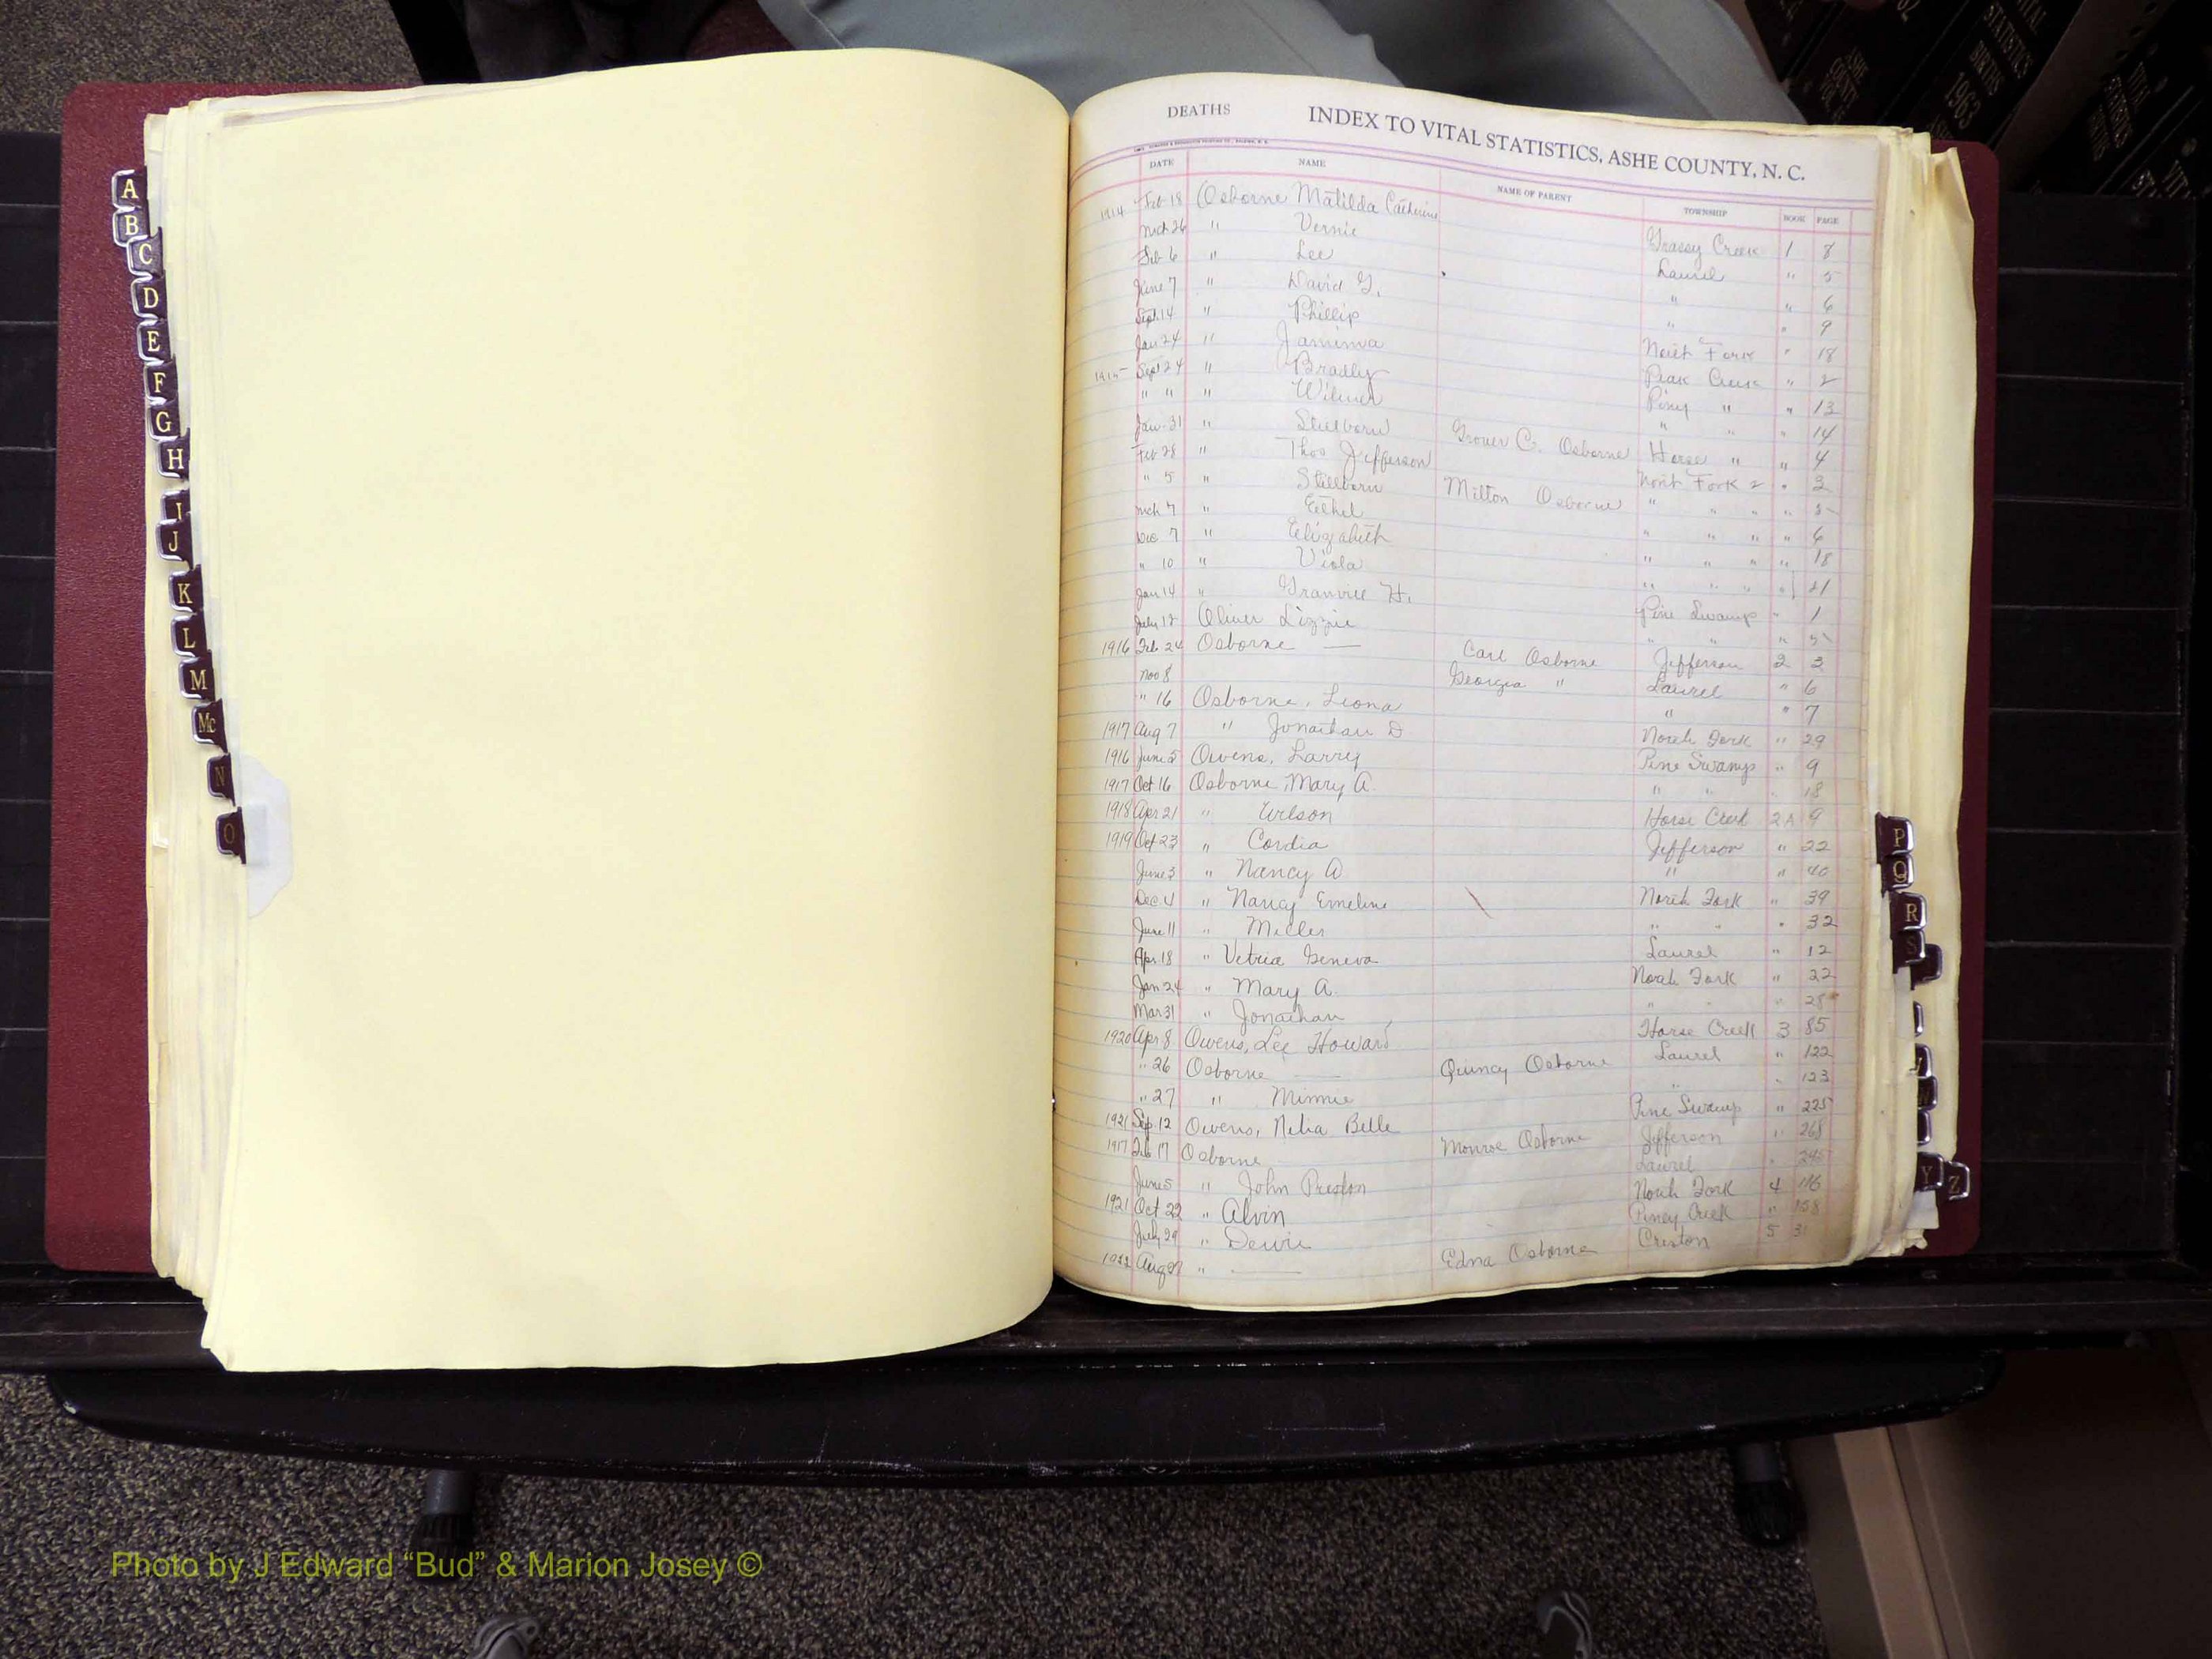 DEATHS INDEX TO VITAL STATISTICS, ASHE COUNTY, N. C.
DATE NAME NAME OF PARENT TOWNSHIP BOOK PAGE
1914 Feb 18 Osborne Matilda Catherine Grassy Creek 1 8
Mch 26 " Vernie Laurel " 5
Feb 6 " Lee " " 6
June 7 " David G. " " 9
Sept. 14 " Phillip North Fork " 18
Jan 24 " Jamima Peak Creek " 2
1915 Sept 24 " Bradly Piny " " 13
" " " Wilmer " " " 14
Jan. 31 " Stillborn Grover C. Osborne Horse " " 4
Feb 28 " Thos Jefferson North Fork 2 " 3
" 5 " Stillborn Milton Osborne " " " " 5
Mch 7 " Ethel " " " " 6
Dec. 7 " Elizabeth " " " " 18
" 10 " Viola " " " " 21
Jan 14 " Granville H. Pine Swamp " 1
July 12 Oliver Lizzie " " " 5
1916 Feb. 24 Osborne — Carl Osborne Jefferson 2 3
Nov 8 Georgia " Laurel " 6
" 16 Osborne, Leona " " 7
1917 Aug 7 " Jonathan D North Fork " 29
1916 June 5 Owens, Larry Pine Swamp " 9
1917 Oct 16 Osborne, Mary A. " " " 18
1918 Apr 21 " Wilson Horse Creek 2A 9
1919 Oct 23 " Cordia Jefferson " 22
June 3 " Nancy A " " 40
Dec. 4 " Nancy Emeline North Fork " 39
June 11 " Miller " " " 32
Apr. 18 " Vetria Geneva Laurel " 12
Jan 24 " Mary A. North Fork " 22
Mar 31 " Jonathan " " " 28
1920 Apr 8 Owens, Lee Howard Horse Creek 3 85
" 26 Osborne — Quincy Osborne Laurel " 122
" 27 " Minnie " " 123
1921 Sep. 12 Owens, Nelia Belle Pine Swamp " 225
1917 Feb 17 Osborne Monroe Osborne Jefferson " 268
June 5 " John Preston Laurel " 245
1921 Oct 22 " Alvin North Fork 4 116
July 29 " Dewie Piney Creek " 158
1922 Aug " — Edna Osborne Creston 5 31
A
B
C
D
E
F
G
H
I
J
K
L
M
Mc
N
O
P
Q
R
S
Y
Z
1963
Photo by J Edward “Bud” & Marion Josey ©